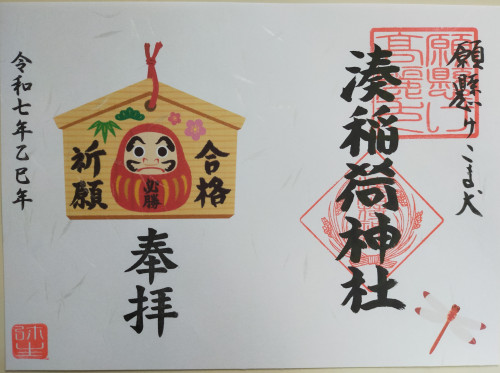 願懸け こま犬
願懸け
高麗犬
湊稲荷神社
合格
祈願
必勝
奉拝
令和七年乙巳年
弥生